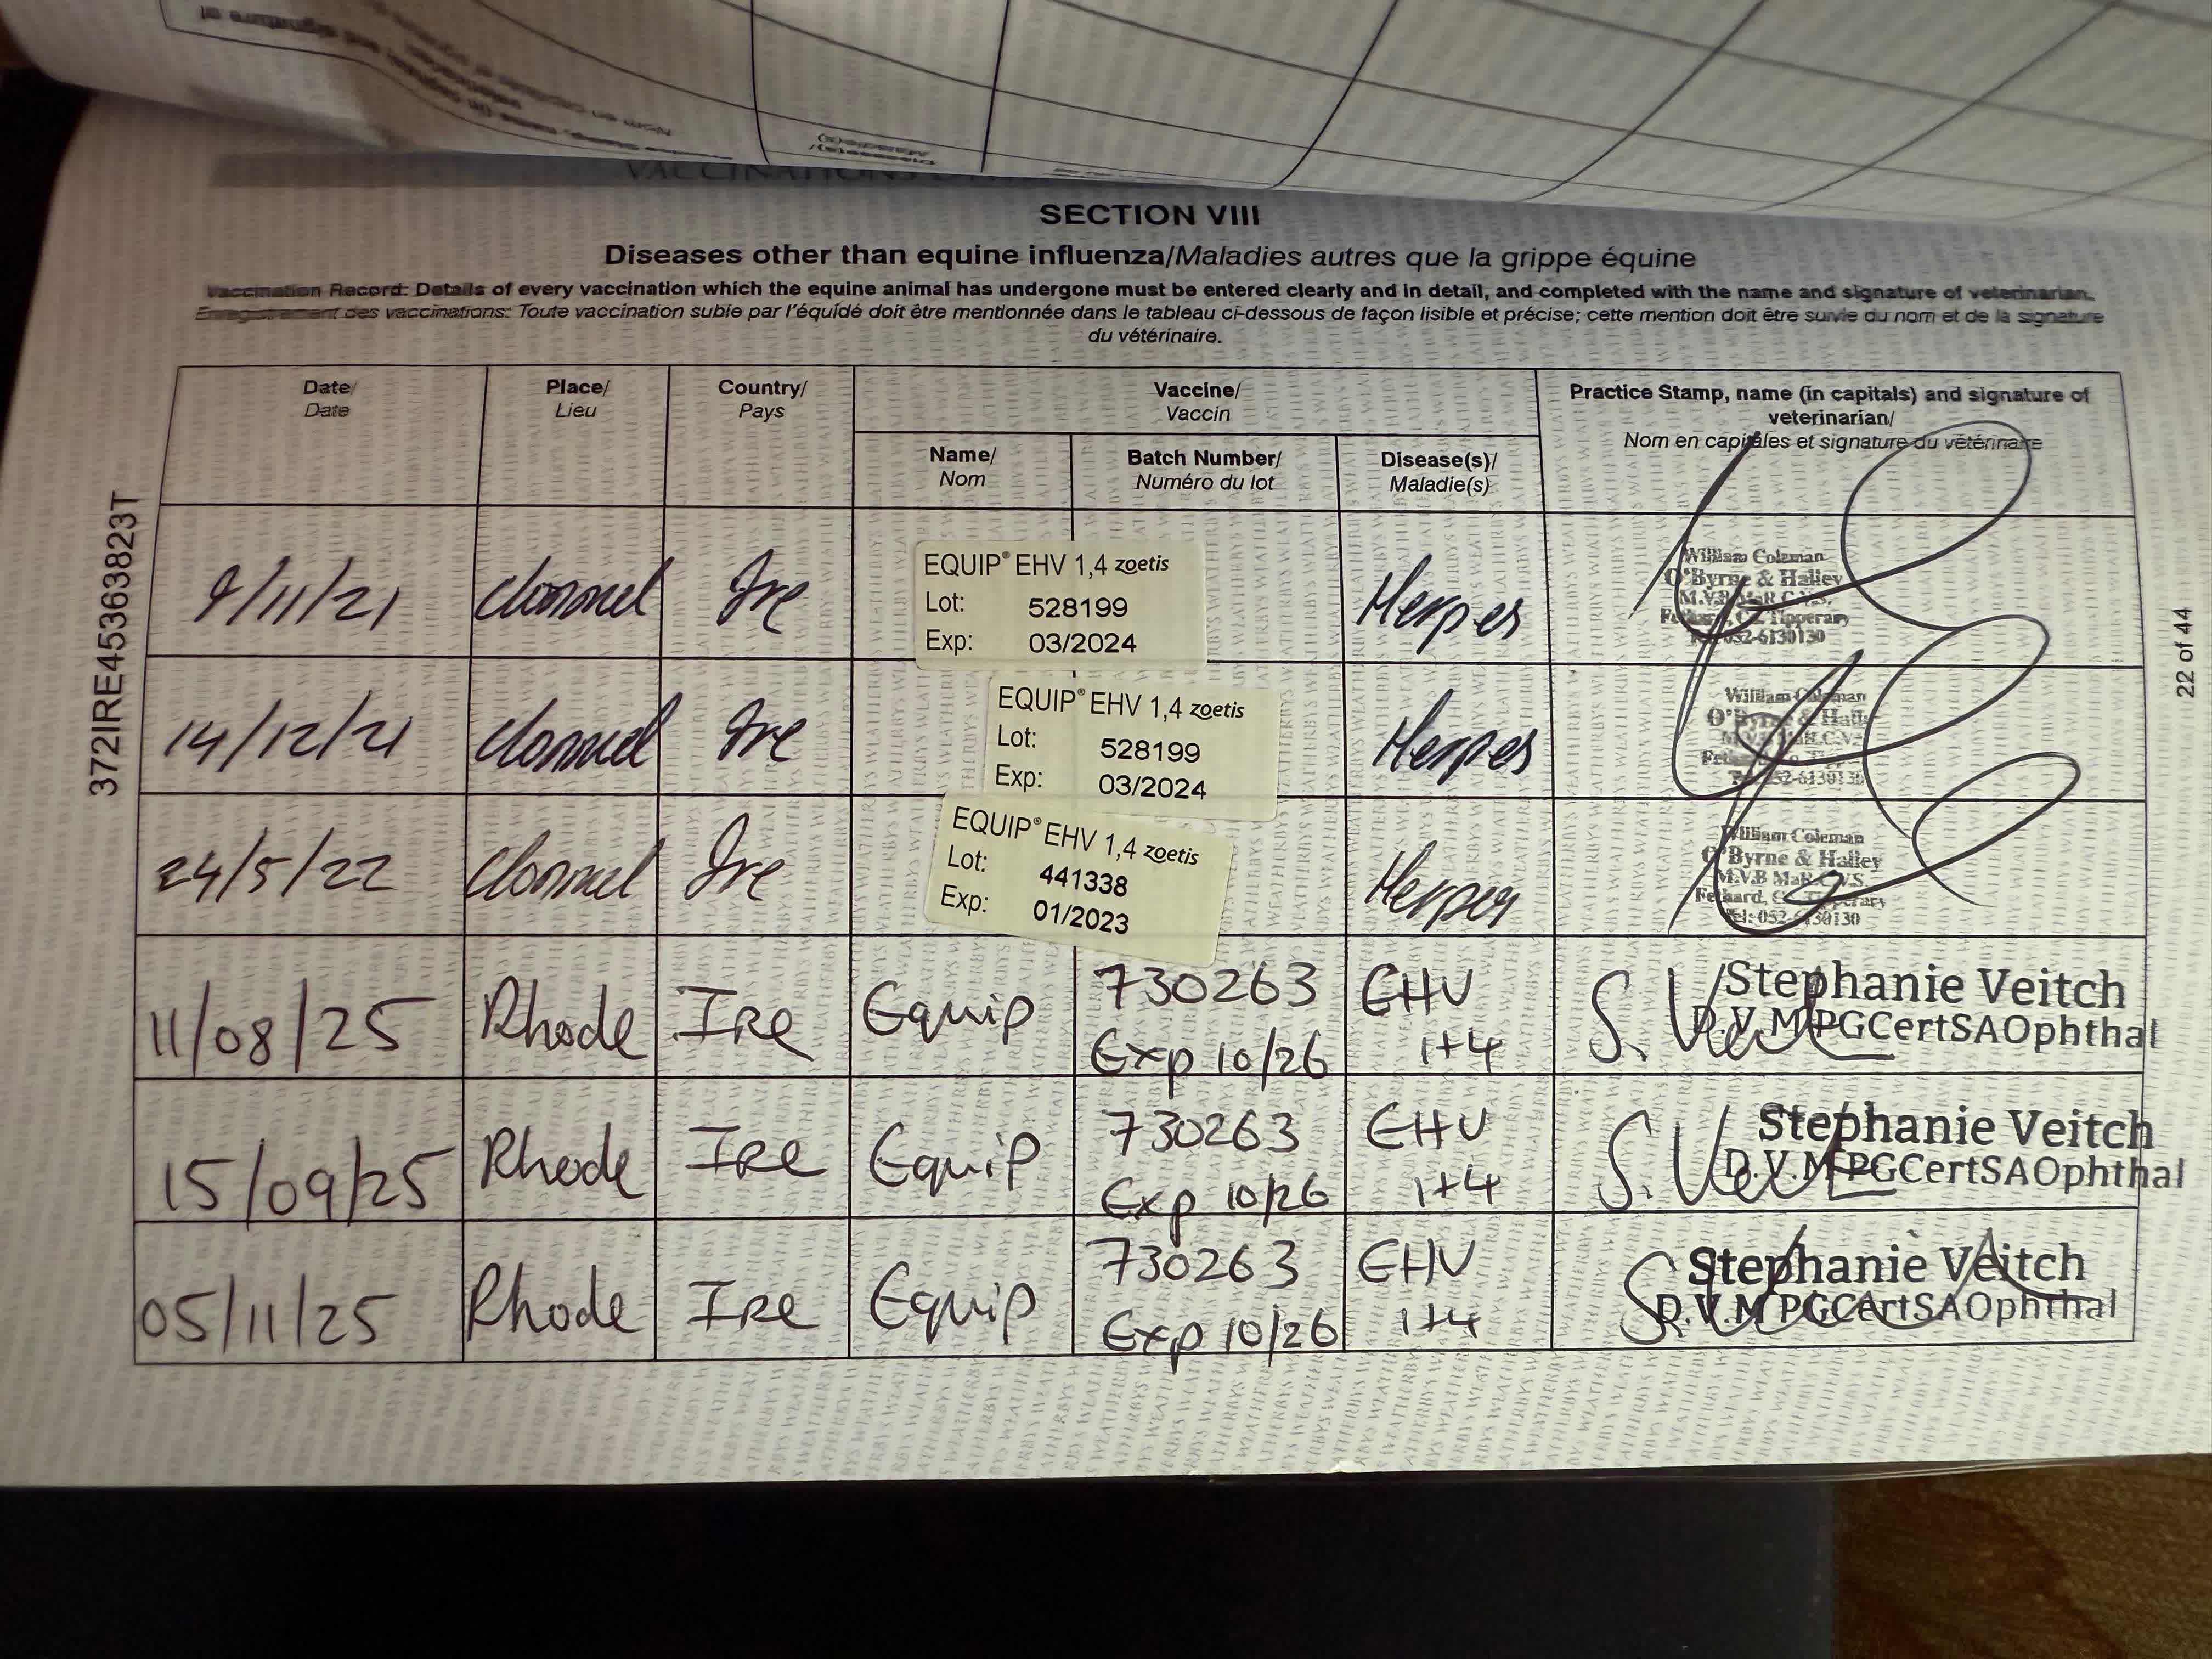 SECTION VIII
Diseases other than equine influenza/Maladies autres que la grippe équine
Vaccination Record: Details of every vaccination which the equine animal has undergone must be entered clearly and in detail, and completed with the name and signature of veterinarian.
Enregistrement des vaccinations: Toute vaccination subie par l'équidé doit être mentionnée dans le tableau ci-dessous de façon lisible et précise; cette mention doit être suivie du nom et de la signature
du vétérinaire.
Date/ Place/ Country/ Vaccine/ Practice Stamp, name (in capitals) and signature of
Date Lieu Pays Vaccin veterinarian/
Nom en capitales et signature du vétérinaire
Name/ Batch Number/ Disease(s)/
Nom Numéro du lot Maladie(s)
9/11/21 Clonmel Ire
EQUIP® EHV 1,4 zoetis
Lot: 528199
Exp: 03/2024
Herpes
William Coleman
O'Byrne & Halley
M.V.B MaR.C.V.S.
Fethard, Co. Tipperary
Tel: 052-6130130
14/12/21 Clonmel Ire
EQUIP® EHV 1,4 zoetis
Lot: 528199
Exp: 03/2024
Herpes
William Coleman
O'Byrne & Halley
24/5/22 Clonmel Ire
EQUIP® EHV 1,4 zoetis
Lot: 441338
Exp: 01/2023
Herpes
William Coleman
O'Byrne & Halley
M.V.B MaR.C.V.S.
Fethard, Co. Tipperary
Tel: 052-6130130
11/08/25 Rhode IRe Equip 730263
Exp 10/26
EHV
1+4
S. Veitch
Stephanie Veitch
D.V.M PGCertSAOphthal
15/09/25 Rhode IRe Equip 730263
Exp 10/26
EHV
1+4
S. Veitch
Stephanie Veitch
D.V.M PGCertSAOphthal
05/11/25 Rhode IRe Equip 730263
Exp 10/26
EHV
1+4
Stephanie Veitch
D.V.M PGCertSAOphthal
372IRE45363823T
22 of 44